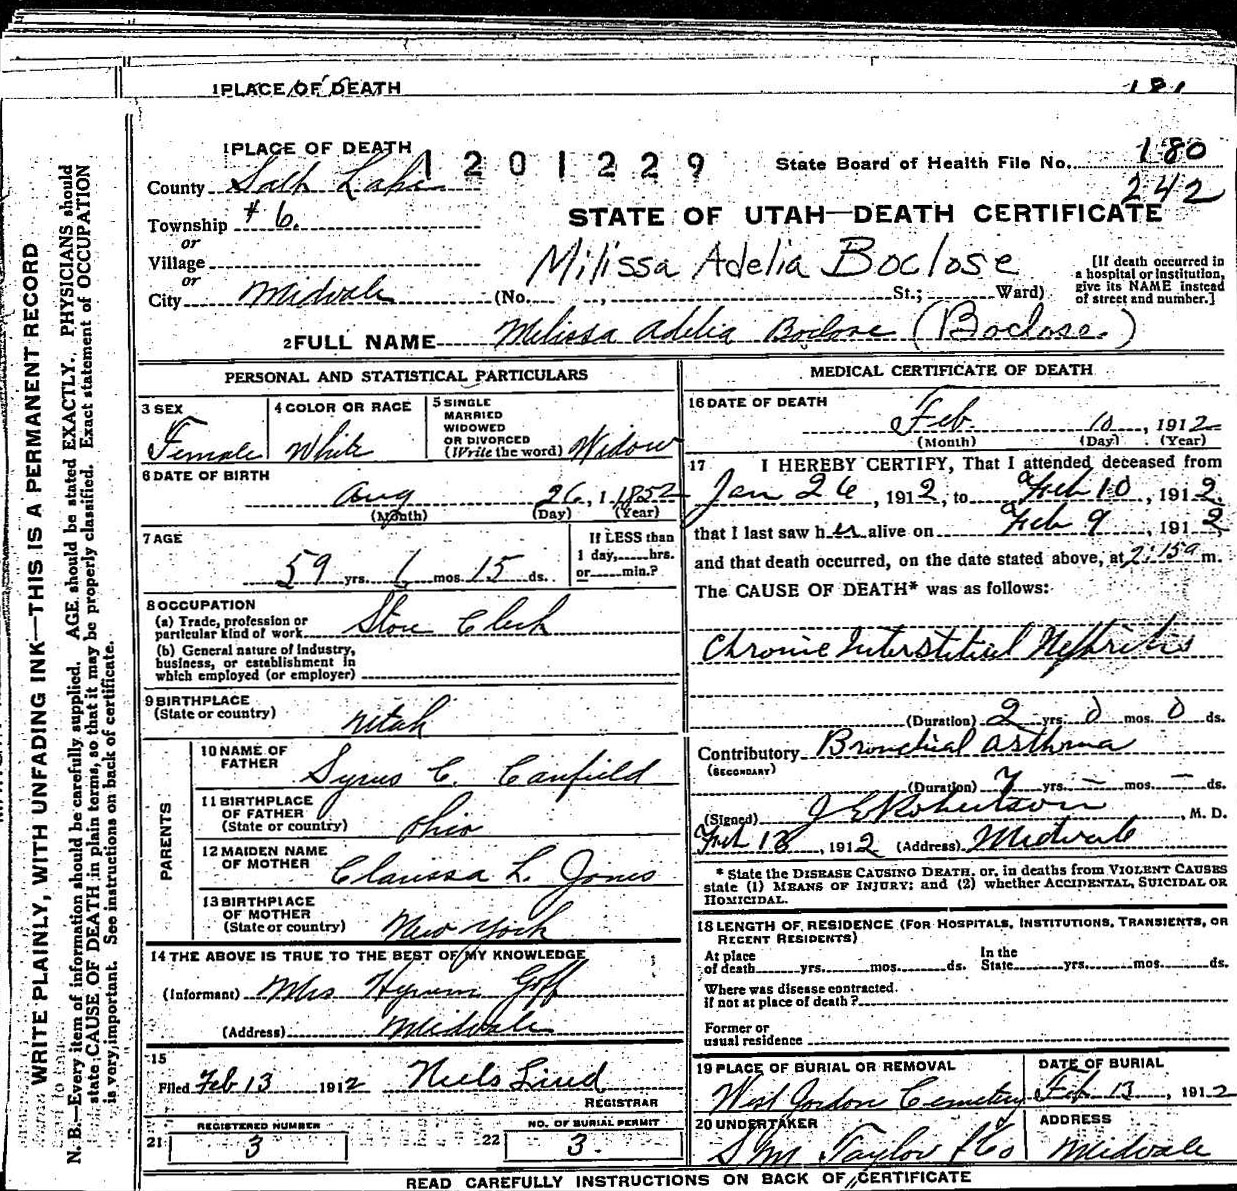 1 PLACE OF DEATH
181
1 PLACE OF DEATH
1201229
State Board of Health File No. 180
242
County Salt Lake
Township #6.
or
Village
or
City Midvale
STATE OF UTAH—DEATH CERTIFICATE
Milissa Adelia Boclose
(No. , St.; Ward)
[If death occurred in a hospital or institution, give its NAME instead of street and number.]
2 FULL NAME Melissa Adelia Boclose (Boclose.)
PERSONAL AND STATISTICAL PARTICULARS
3 SEX
Female
4 COLOR OR RACE
White
5 SINGLE
MARRIED
WIDOWED
OR DIVORCED
(Write the word) Widow
6 DATE OF BIRTH
Aug 26, 1 1852
(Month) (Day) (Year)
7 AGE
59 yrs. 6 mos. 15 ds.
If LESS than
1 day, hrs.
or min.?
8 OCCUPATION
(a) Trade, profession or
particular kind of work Store Clerk
(b) General nature of industry,
business, or establishment in
which employed (or employer)
9 BIRTHPLACE
(State or country) Utah
PARENTS
10 NAME OF
FATHER Syrus C. Canfield
11 BIRTHPLACE
OF FATHER
(State or country) Ohio
12 MAIDEN NAME
OF MOTHER Clarissa L. Jones
13 BIRTHPLACE
OF MOTHER
(State or country) New York
14 THE ABOVE IS TRUE TO THE BEST OF MY KNOWLEDGE
(Informant) Mrs Hyrum Goff
(Address) Midvale
15
Filed Feb 13 1912 Niels Lind
REGISTRAR
REGISTERED NUMBER
21 3
NO. OF BURIAL PERMIT
22 3.
MEDICAL CERTIFICATE OF DEATH
16 DATE OF DEATH
Feb. 10, 1912
(Month) (Day) (Year)
17 I HEREBY CERTIFY, That I attended deceased from
Jan 26, 1912, to Feb 10, 1912.
that I last saw her alive on Feb 9, 1912,
and that death occurred, on the date stated above, at 2:15 a m.
The CAUSE OF DEATH* was as follows:
Chronic Interstitial Nephritis
(Duration) 2 yrs. 0 mos. 0 ds.
Contributory Bronchial Asthma
(SECONDARY)
(Duration) 7 yrs. — mos. — ds.
(Signed) J E Robertson, M. D.
Feb 13, 1912 (Address) Midvale
* State the DISEASE CAUSING DEATH, or, in deaths from VIOLENT CAUSES
state (1) MEANS OF INJURY; and (2) whether ACCIDENTAL, SUICIDAL OR
HOMICIDAL.
18 LENGTH OF RESIDENCE (FOR HOSPITALS, INSTITUTIONS, TRANSIENTS, OR
RECENT RESIDENTS)
At place
of death yrs. mos. ds.
In the
State yrs. mos. ds.
Where was disease contracted.
if not at place of death?
Former or
usual residence
19 PLACE OF BURIAL OR REMOVAL
West Jordon Cemetery
DATE OF BURIAL
Feb 13, 1912
20 UNDERTAKER
S M Taylor & Co
ADDRESS
Midvale
READ CAREFULLY INSTRUCTIONS ON BACK OF CERTIFICATE
WRITE PLAINLY, WITH UNFADING INK—THIS IS A PERMANENT RECORD
N. B.—Every item of information should be carefully supplied. AGE should be stated EXACTLY. PHYSICIANS should
state CAUSE OF DEATH in plain terms, so that it may be properly classified. Exact statement of OCCUPATION
is very important. See instructions on back of certificate.